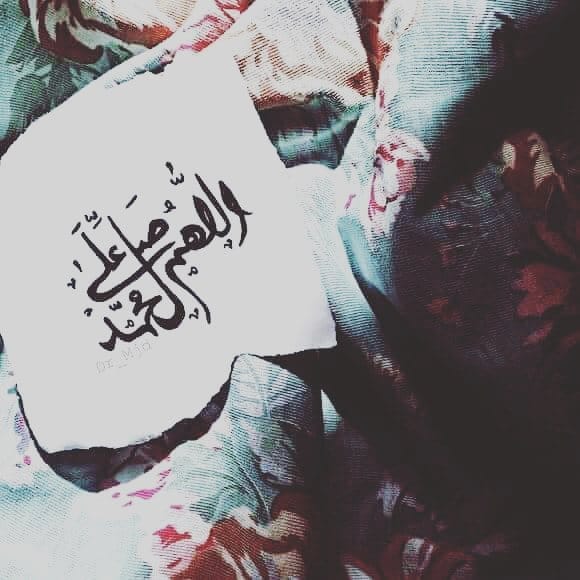 اللَّهُمَّ صَلِّ عَلَى
مُحَمَّد